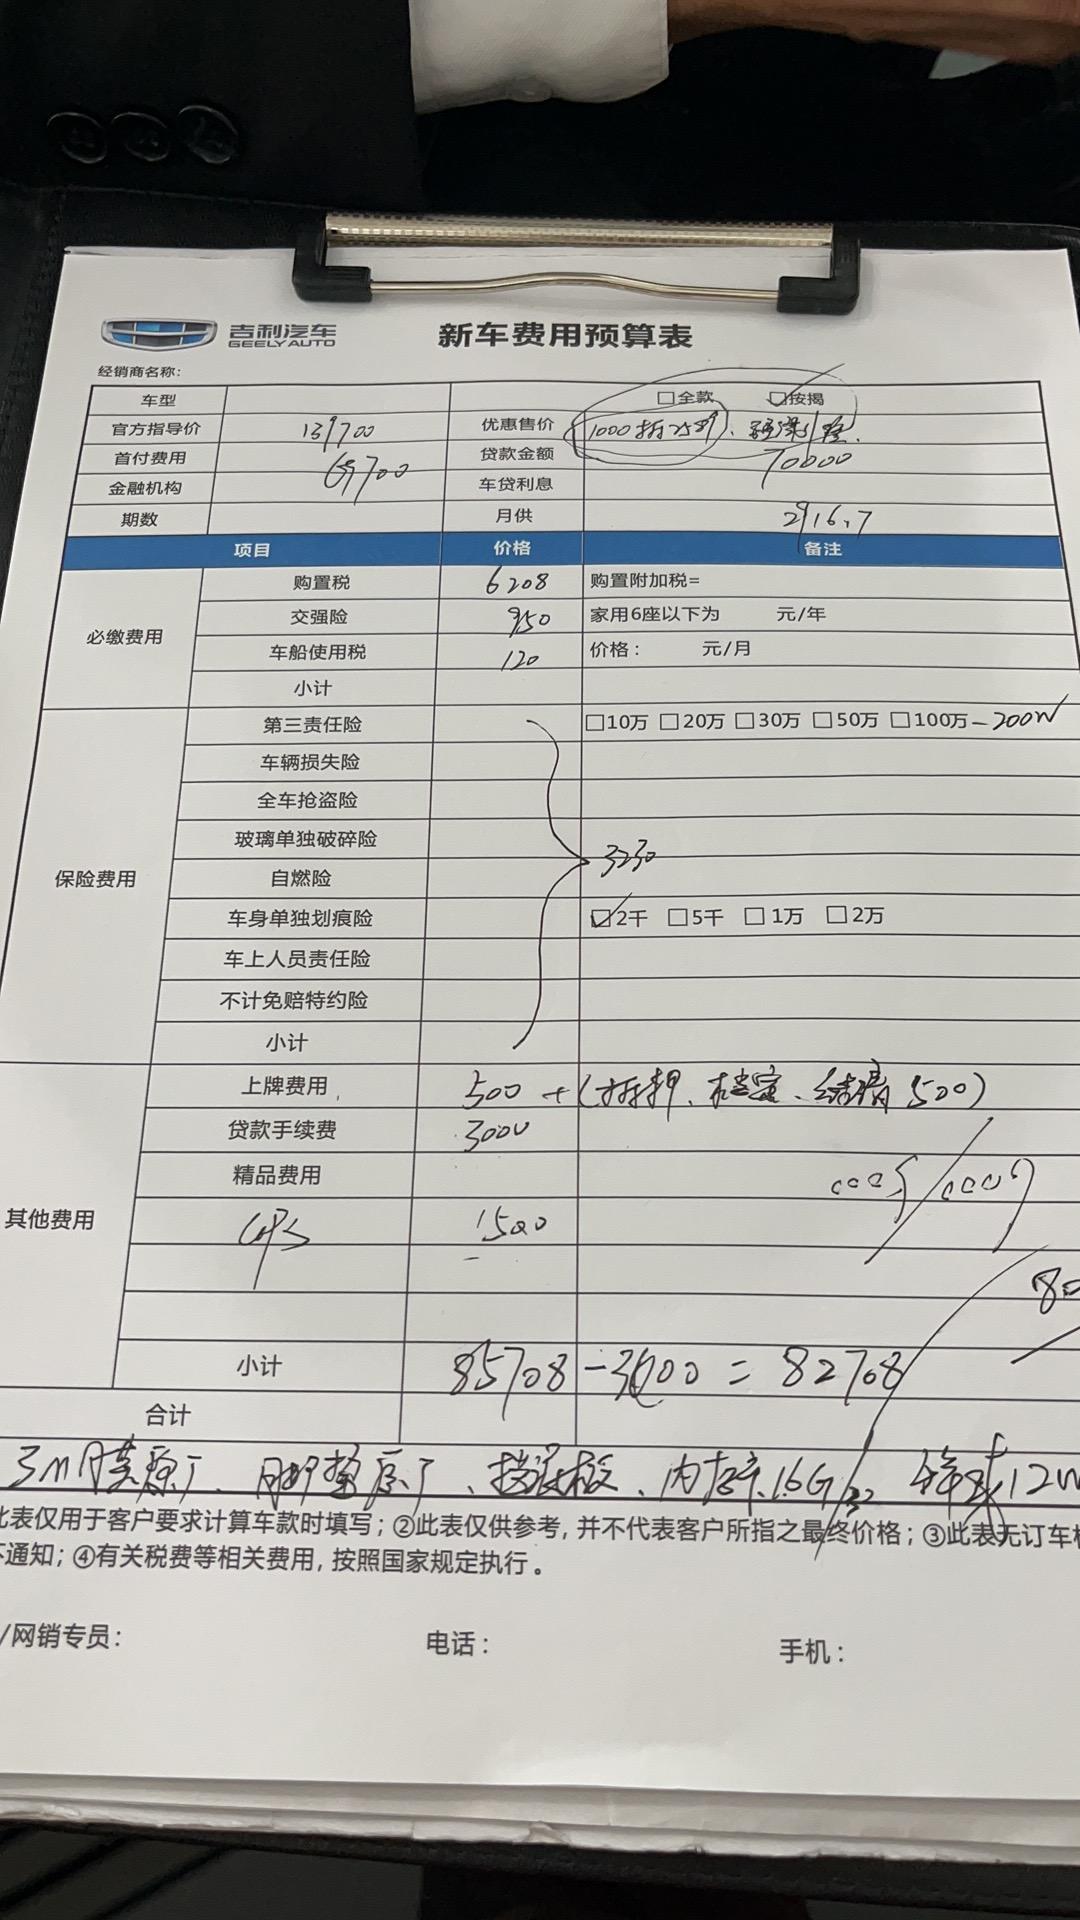 吉利汽车 新车费用预算表
GEELY AUTO
经销商名称:
车型 □全款 ☑按揭
官方指导价 139700 优惠售价 1000抵
首付费用 69700 贷款金额 70000
金融机构 车贷利息
期数 月供 2916.7
项目 价格 备注
必缴费用
购置税 6208 购置附加税=
交强险 950 家用6座以下为 元/年
车船使用税 120 价格: 元/月
小计
保险费用
第三责任险 □10万 □20万 □30万 □50万 □100万-200W
车辆损失险
全车抢盗险
玻璃单独破碎险
3230
自燃险
车身单独划痕险 ☑2千 □5千 □1万 □2万
车上人员责任险
不计免赔特约险
小计
其他费用
上牌费用 500 +(抵押、档案、结清500)
贷款手续费 3000
精品费用
GPS 1500
小计 85708-3000=82708
合计
3M膜原厂、脚垫原厂、挡泥板、内存16G/32
此表仅用于客户要求计算车款时填写;②此表仅供参考,并不代表客户所指之最终价格;③此表无订车
不通知;④有关税费等相关费用,按照国家规定执行。
/网销专员: 电话: 手机: